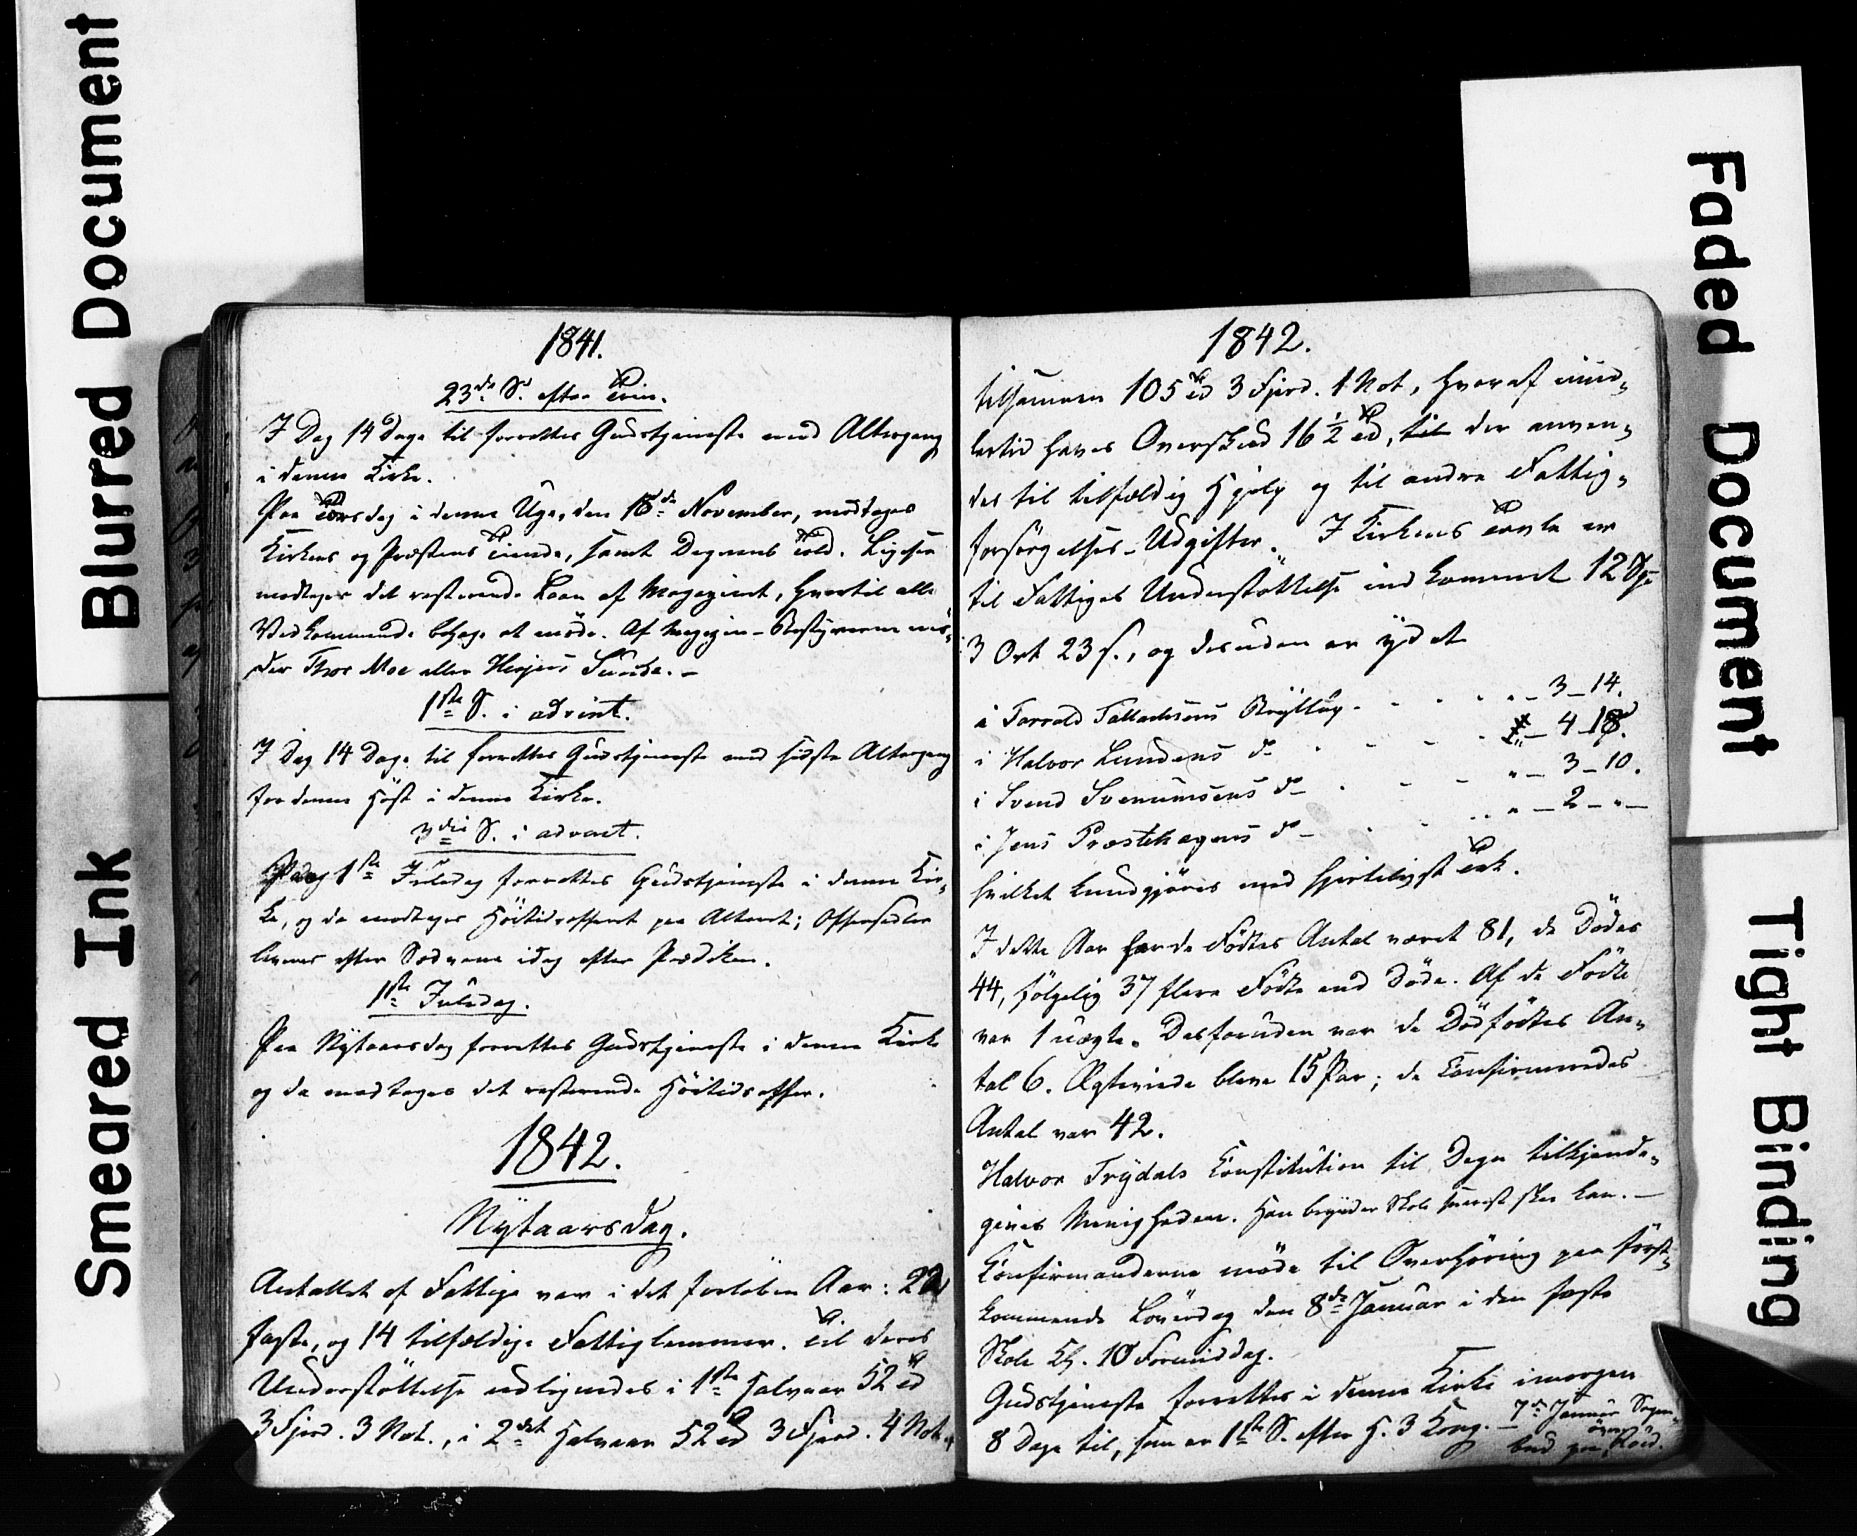 Blurred Document
Smeared Ink
1841.
23de S. efter Trin.
I Dag 14 Dage til forrettes Gudstjeneste med Altergang
i denne Kirke.
Paa Torsdag i denne Uge, den 18de November, modtages
Kirkens og Præstens Tiende, samt Degnens Told. Ligesaa
modtages det resterende Laan af Magazinet, hvortil alle
Vedkommende behage at møde. Af Magazin-Bestyrerne mö-
der Thor Moe eller Sunde. -
1ste S. i advent.
I Dag 14 Dage til forrettes Gudstjeneste med sidste Altergang
for denne Höst i denne Kirke.
3die S. i advent.
Paa 1ste Juledag forrettes Gudstjeneste i denne Kir-
ke, og da modtages Höitidsofferet paa Alteret; Offersedler
leveres efter Sædvane idag efter Prædiken.
1ste Juledag.
Paa Nytaarsdag forrettes Gudstjeneste i denne Kirke
og da modtages det resterende Höitidsoffer.
1842.
Nytaarsdag.
Antallet af Fattige var i det forløbne Aar: 22
faste, og 14 tilfældige Fattiglemmer. Til deres
Understöttelse udlignedes i 1ste Halvaar 52 Td
3 Fjerd. 3 Not., i 2det Halvaar 52 Td 3 Fjerd. 4 Not.
1842.
tilsammen 105 Td 3 Fjerd. 1 Not, hvoraf imid-
lertid haves Overskud 16 1/2 Td, til der anven-
des til tilfældig Hjelp og til andre Fattig-
forsörgelses-Udgifter. I Kirkens Tavle er
til Fattiges Understöttelse indkommet 12 Spd
3 Ort 23 s., og desuden er ydet
i Torvald Bryllup - - - " - 3 - 14.
i Halvor Lundens do - - - - 4 - 18.
i Svend Svenumsens do - - - " - 3 - 10.
i Jens Præstehagens do - - - " - 2 - " -
hvilket kundgjöres med hjerteligst Tak.
I dette Aar har de Födtes Antal været 81, de Dödes
44, fölgelig 37 flere Födte end Döde. Af de Födte
var 1 uægte. Desforuden var de Dödfödtes An-
tal 6. Ægteviede bleve 15 Par; de Confirmeredes
Antal var 42.
Halvor Trydals Constitution til Degn tilkjende-
gives Menigheden. Han begynder Skole snarest skee kan. -
Confirmanderne möde til Overhöring paa först-
kommende Löverdag den 8de Januar i den faste
Skole Kl. 10 Formiddag.
Gudstjeneste forrettes i denne Kirke imorgen
8 Dage til, som er 1ste S. efter H. 3 Kong. - 7de Januar Sogne-
bud paa övre Röed.
Faded Document
Tight Binding